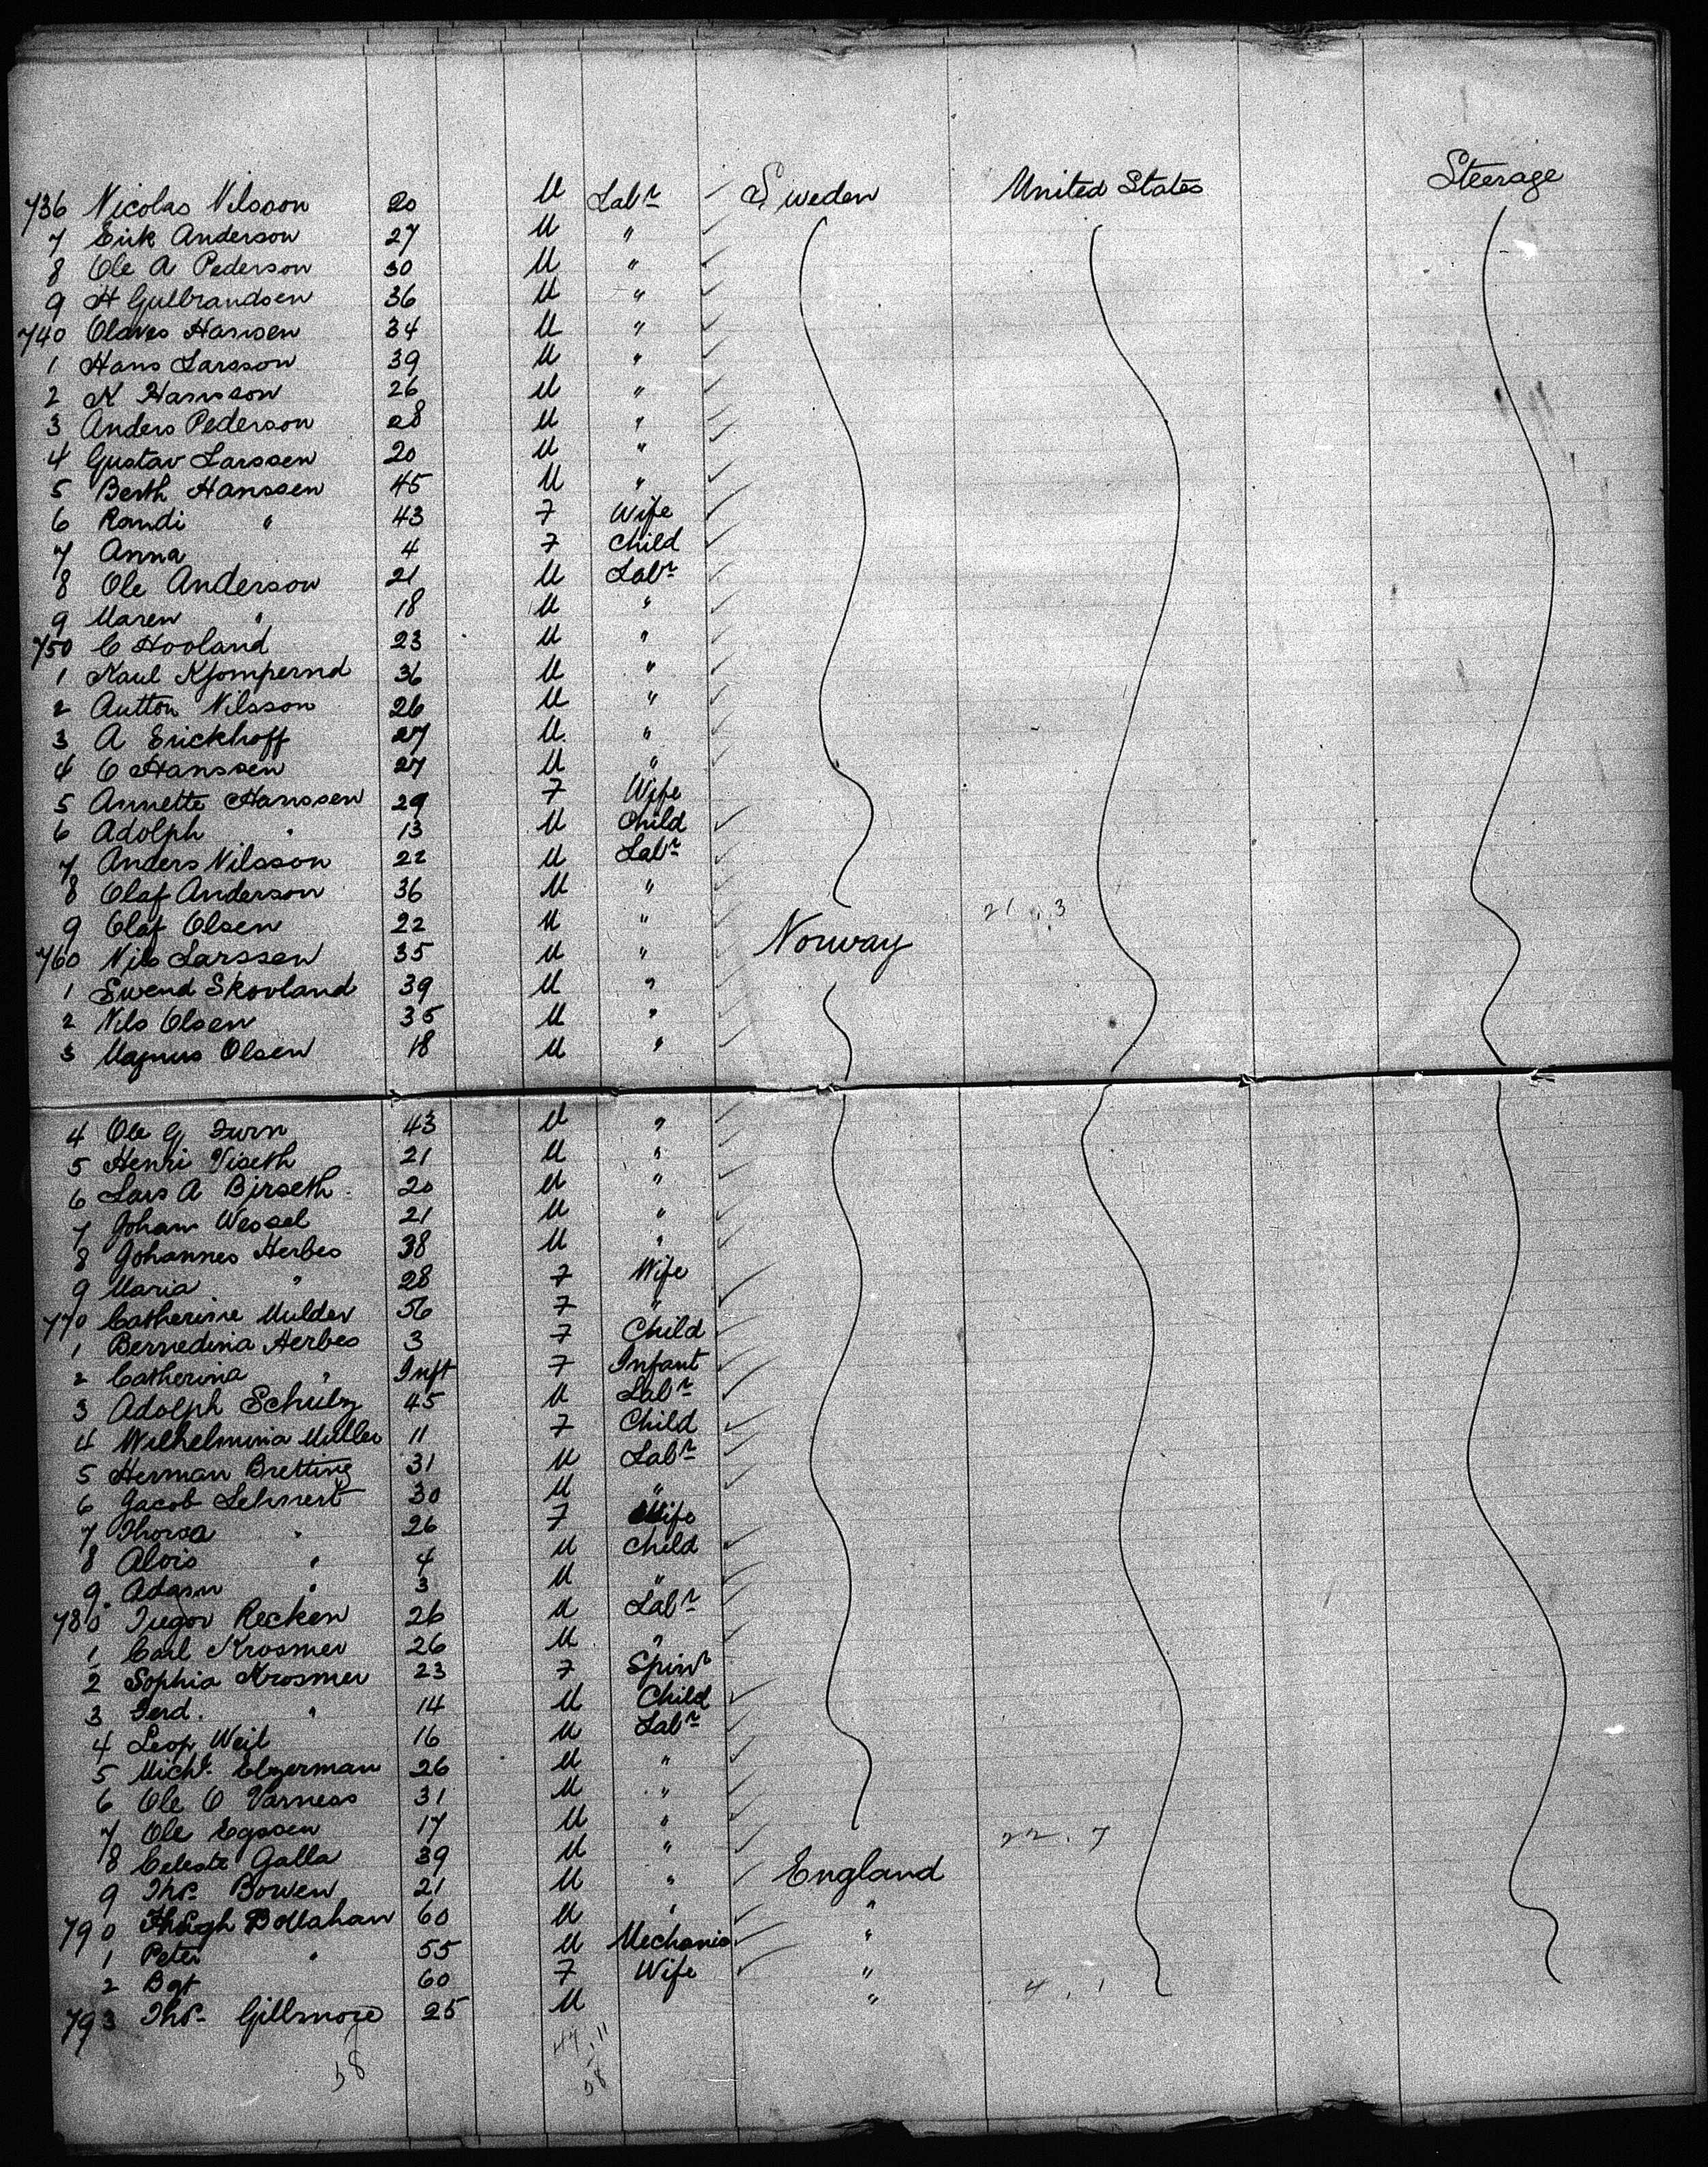 736 Nicolas Nilsson 20 M Labr Sweden United States Steerage
7 Erik Anderson 27 M "
8 Ole A Pederson 30 M "
9 H Gulbrandsen 36 M "
740 Olaves Hansen 34 M "
1 Hans Larsson 39 M "
2 N Hansson 26 M "
3 Anders Pederson 28 M "
4 Gustav Larssen 20 M "
5 Berth Hanssen 45 M "
6 Randi " 43 F Wife
7 Anna 4 F Child
8 Ole Anderson 21 M Labr
9 Maren " 18 M "
750 C Hooland 23 M "
1 Karl Kjompernd 36 M "
2 Autton Nilsson 26 M "
3 A Erickhoff 27 M "
4 O Hanssen 27 M "
5 Annette Hanssen 29 F Wife
6 Adolph " 13 M Child
7 Anders Nilsson 22 M Labr
8 Olaf Anderson 36 M "
9 Olaf Olsen 22 M " 21 . 3
760 Nils Larssen 35 M " Norway
1 Swend Skovland 39 M "
2 Nils Olsen 35 M "
3 Magnus Olsen 18 M "
4 Ole G Furn 43 M "
5 Henri Viseth 21 M "
6 Lars A Birseth 20 M "
7 Johan Wessel 21 M "
8 Johannes Herbes 38 M "
9 Maria " 28 F Wife
770 Catherine Mulder 56 F "
1 Bernedina Herbes 3 F Child
2 Catherina " Inft F Infant
3 Adolph Schulz 45 M Labr
4 Wilhelmina Muller 11 F Child
5 Herman Bretting 31 M Labr
6 Jacob Lehnert 30 M "
7 Thorsa " 26 F Wife
8 Alois " 4 M Child
9 Adam " 3 M "
780 Recken 26 M Labr
1 Carl Krosmer 26 M "
2 Sophia Krosmer 23 F Spinr
3 Ferd. " 14 M Child
4 Leop Weil 16 M Labr
5 Michl. Elzerman 26 M "
6 Ole O Varness 31 M "
7 Ole Egssen 17 M "
8 Celeste Galla 39 M " 22 . 7
9 Thos. Bowen 21 M " England
790 Hugh 60 M " "
1 Peter " 55 M Mechanic "
2 Bgt 60 F Wife "
793 Thos. Gillmore 25 M " 4 . 1
47 . 11
58 58